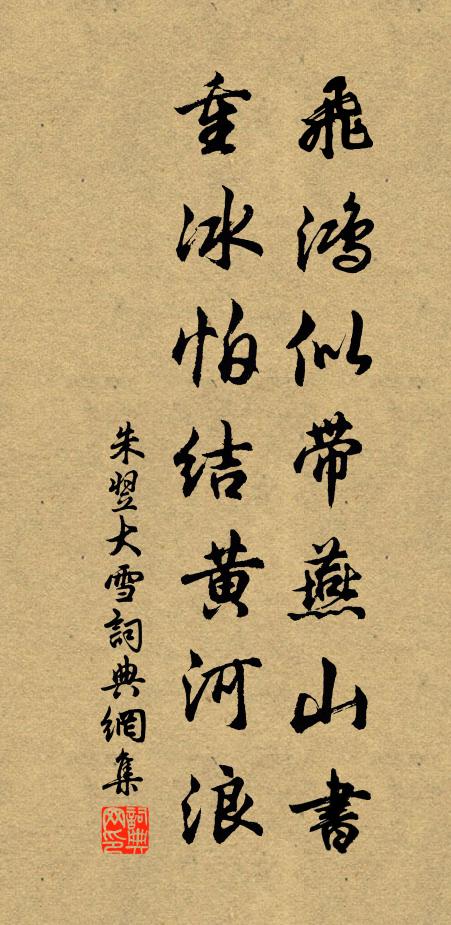 飛鴻似帶燕山書
重冰怕結黄河浪
朱翌大雪詞典網集
詞典网印